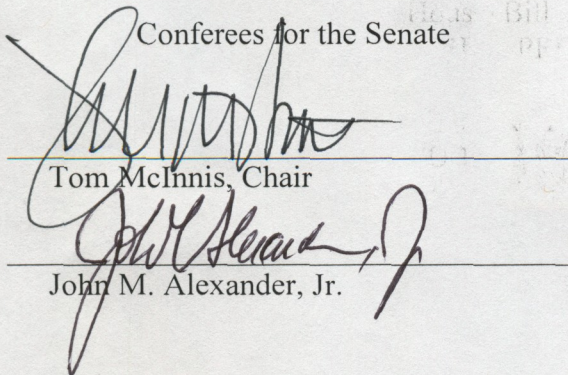 Conferees for the Senate
Tom McInnis, Chair
John M Alexander, Jr
John M. Alexander, Jr.